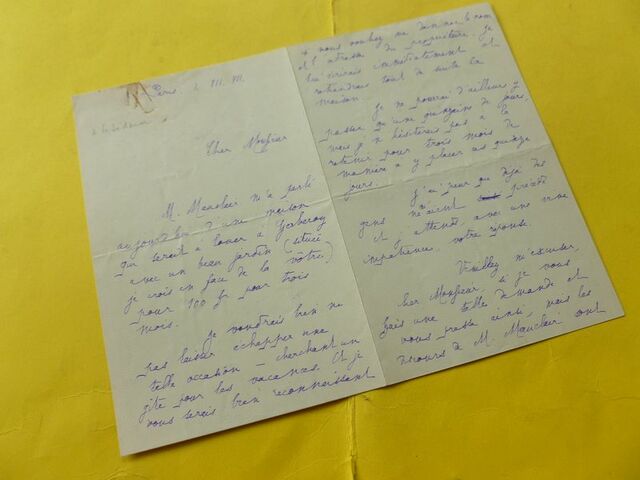 Paris, 2 VII. VII.
Cher Monsieur
M. Mauclair m'a parlé
aujourd'hui d'une maison
qui serait à louer à Gerberoy
avec un beau jardin (situé
je crois en face de la vôtre)
pour 100 fr pour trois
mois.
Je voudrais bien ne
pas laisser échapper une
telle occasion – cherchant un
gîte pour les vacances. Et je
vous serais bien reconnaissant
si vous vouliez me donner le nom
et l'adresse du propriétaire. Je
lui écrirais immédiatement et
retiendrais tout de suite la
maison.
Je ne pourrai d'ailleurs y
passer qu'une quinzaine de jours,
mais je n'hésiterais pas à la
retenir pour trois mois de
manière à y placer ces quinze
jours.
J'ai peur que déjà des
gens n'aient preédé
et j'attends, avec une vive
impatience, votre réponse.
Veuillez m'excuser,
cher Monsieur, si je vous
fais une telle demande et
vous presse ainsi, mais les
de M. Mauclair ont